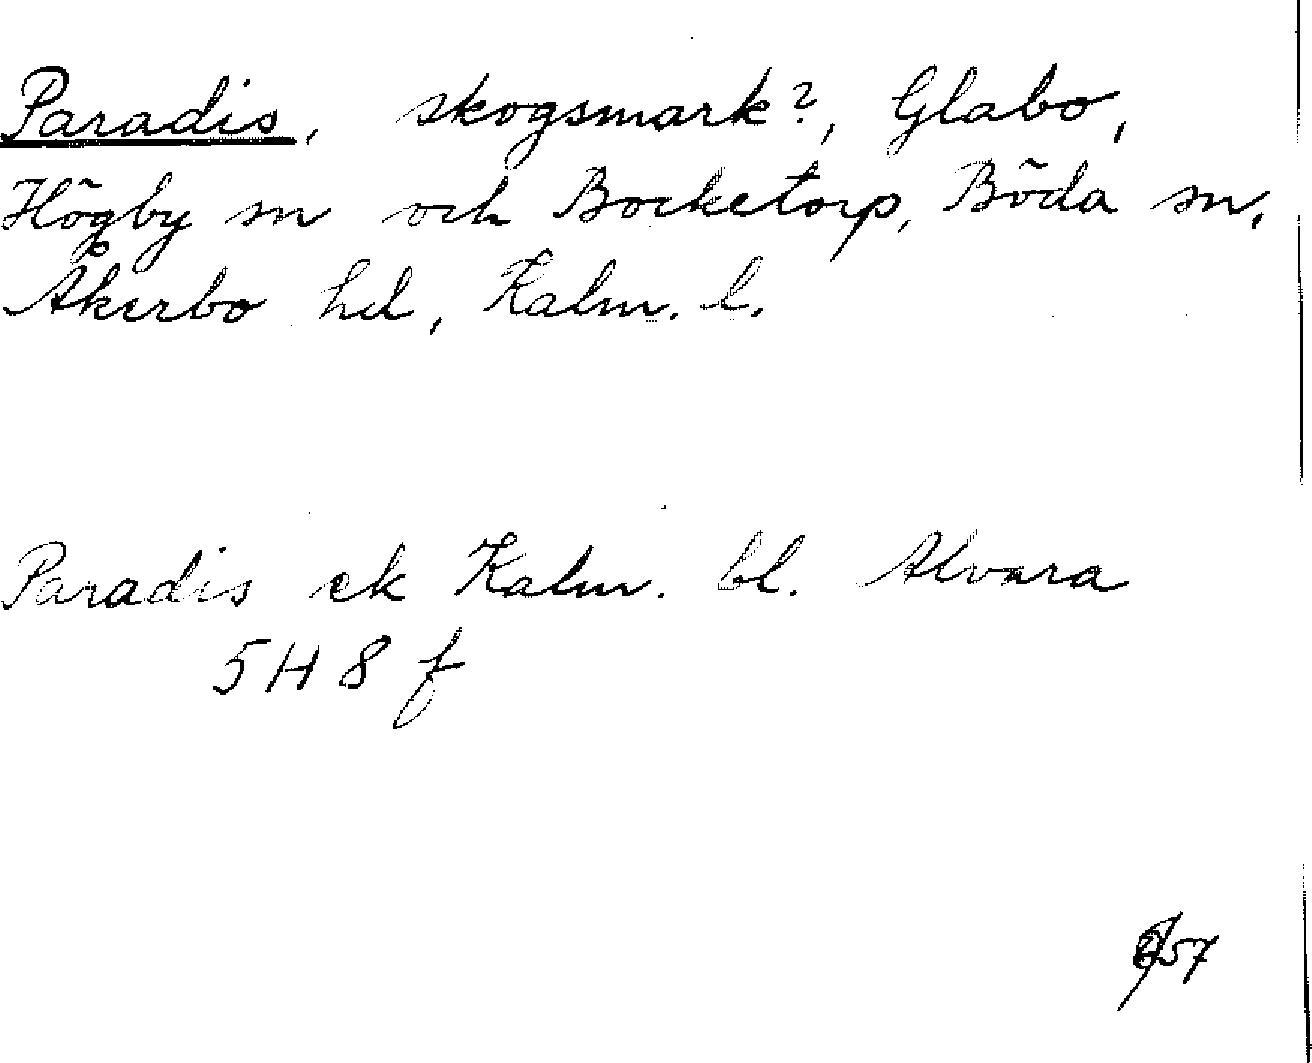 Paradis, skogsmark?, Glabo,
Högby sn och Bocketorp, Böda sn,
Åkerbo hd, Kalm. l.
Paradis ek Kalm. bl. Alvara
5H8f